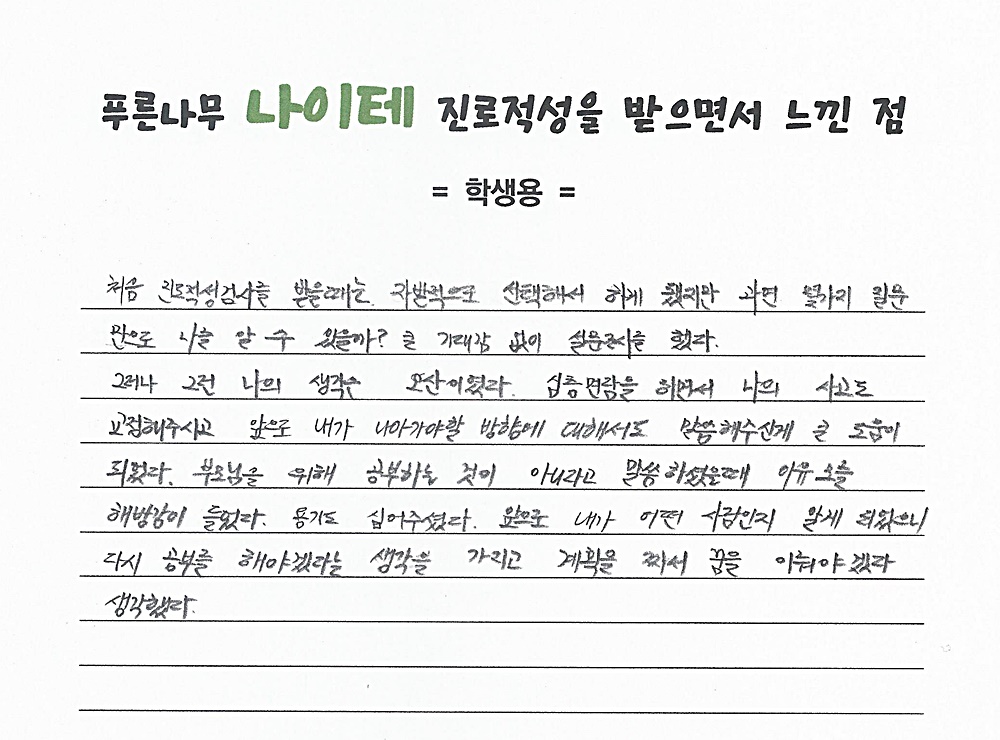 푸른나무 나이테 진로적성을 받으면서 느낀 점
= 학생용 =
처음 진로적성검사를 받을때는 자발적으로 선택해서 하게 됐지만 과연 몇가지 질문
만으로 나를 알 수 있을까? 큰 기대감 없이 설문조사를 했다.
그러나 그런 나의 생각은 오산이였다. 심층면담을 하면서 나의 사고도
교정해주시고 앞으로 내가 나아가야할 방향에 대해서도 말씀해주신게 큰 도움이
되었다. 부모님을 위해 공부하는 것이 아니라고 말씀하셨을때 아유
해방감이 들었다. 용기도 심어주셨다. 앞으로 내가 어떤 사람인지 알게 되었으니
다시 공부를 해야겠다는 생각을 가지고 계획을 짜서 꿈을 이뤄야겠다
생각했다.